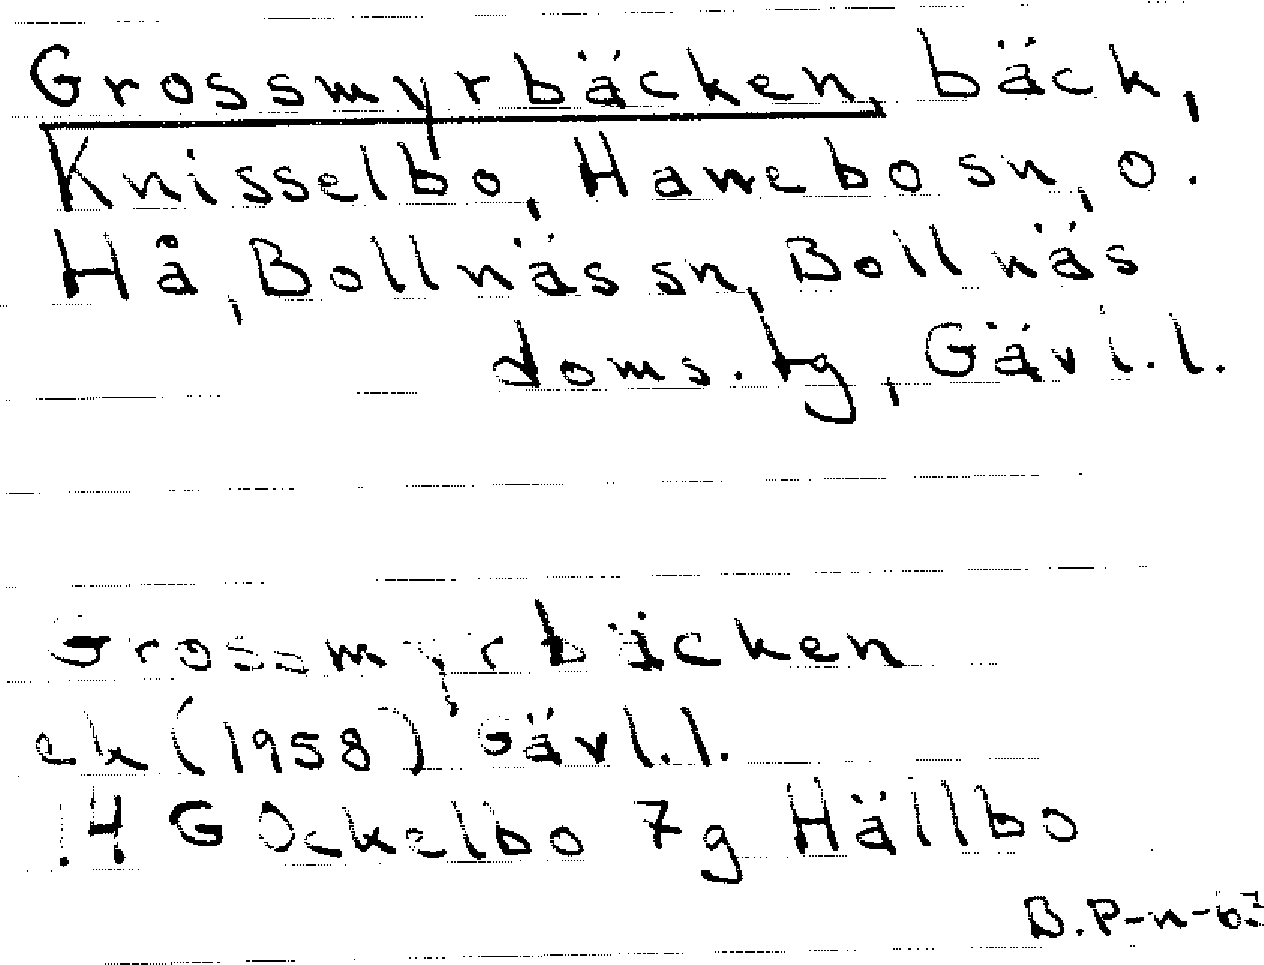 Grossmyrbäcken, bäck,
Knisselbo, Hanebo sn, o.
Hå, Bollnäs sn, Bollnäs
doms. tg, Gävl. l.
Grossmyrbäcken
ek (1958) Gävl. l.
14 G Ockelbo 7g Hällbo
B. P-n-63